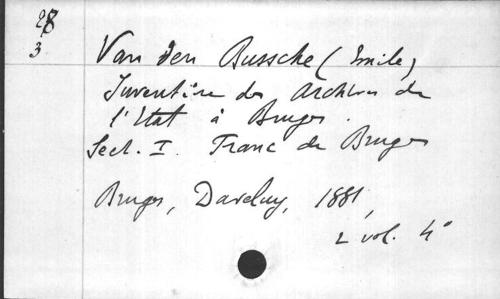 28
3
Van den Bussche (Emile)
Inventaire des Archives de
l'Etat à Bruges.
Sect. I. Franc de Bruges
Bruges, Daveluy, 1881,
2 vol. 4°